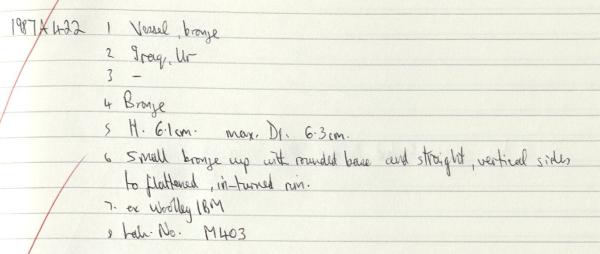 1987A422 1 Vessel, bronze
2 Iraq, Ur
3 –
4 Bronze
5 H. 6.1cm. max. Di. 6.3cm.
6 Small bronze cup with rounded base and straight, vertical sides
to flattened, in-turned rim.
7. ex Woolley/BM
8 Lab. No. M403